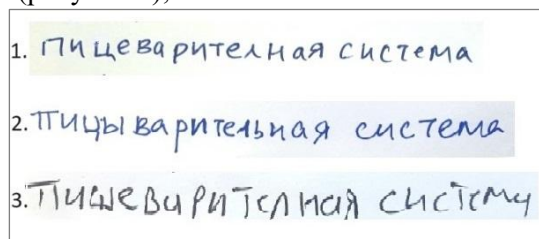 1. Пицеварителная система
2. Пицыварительная система
3. Пишеварителная систему